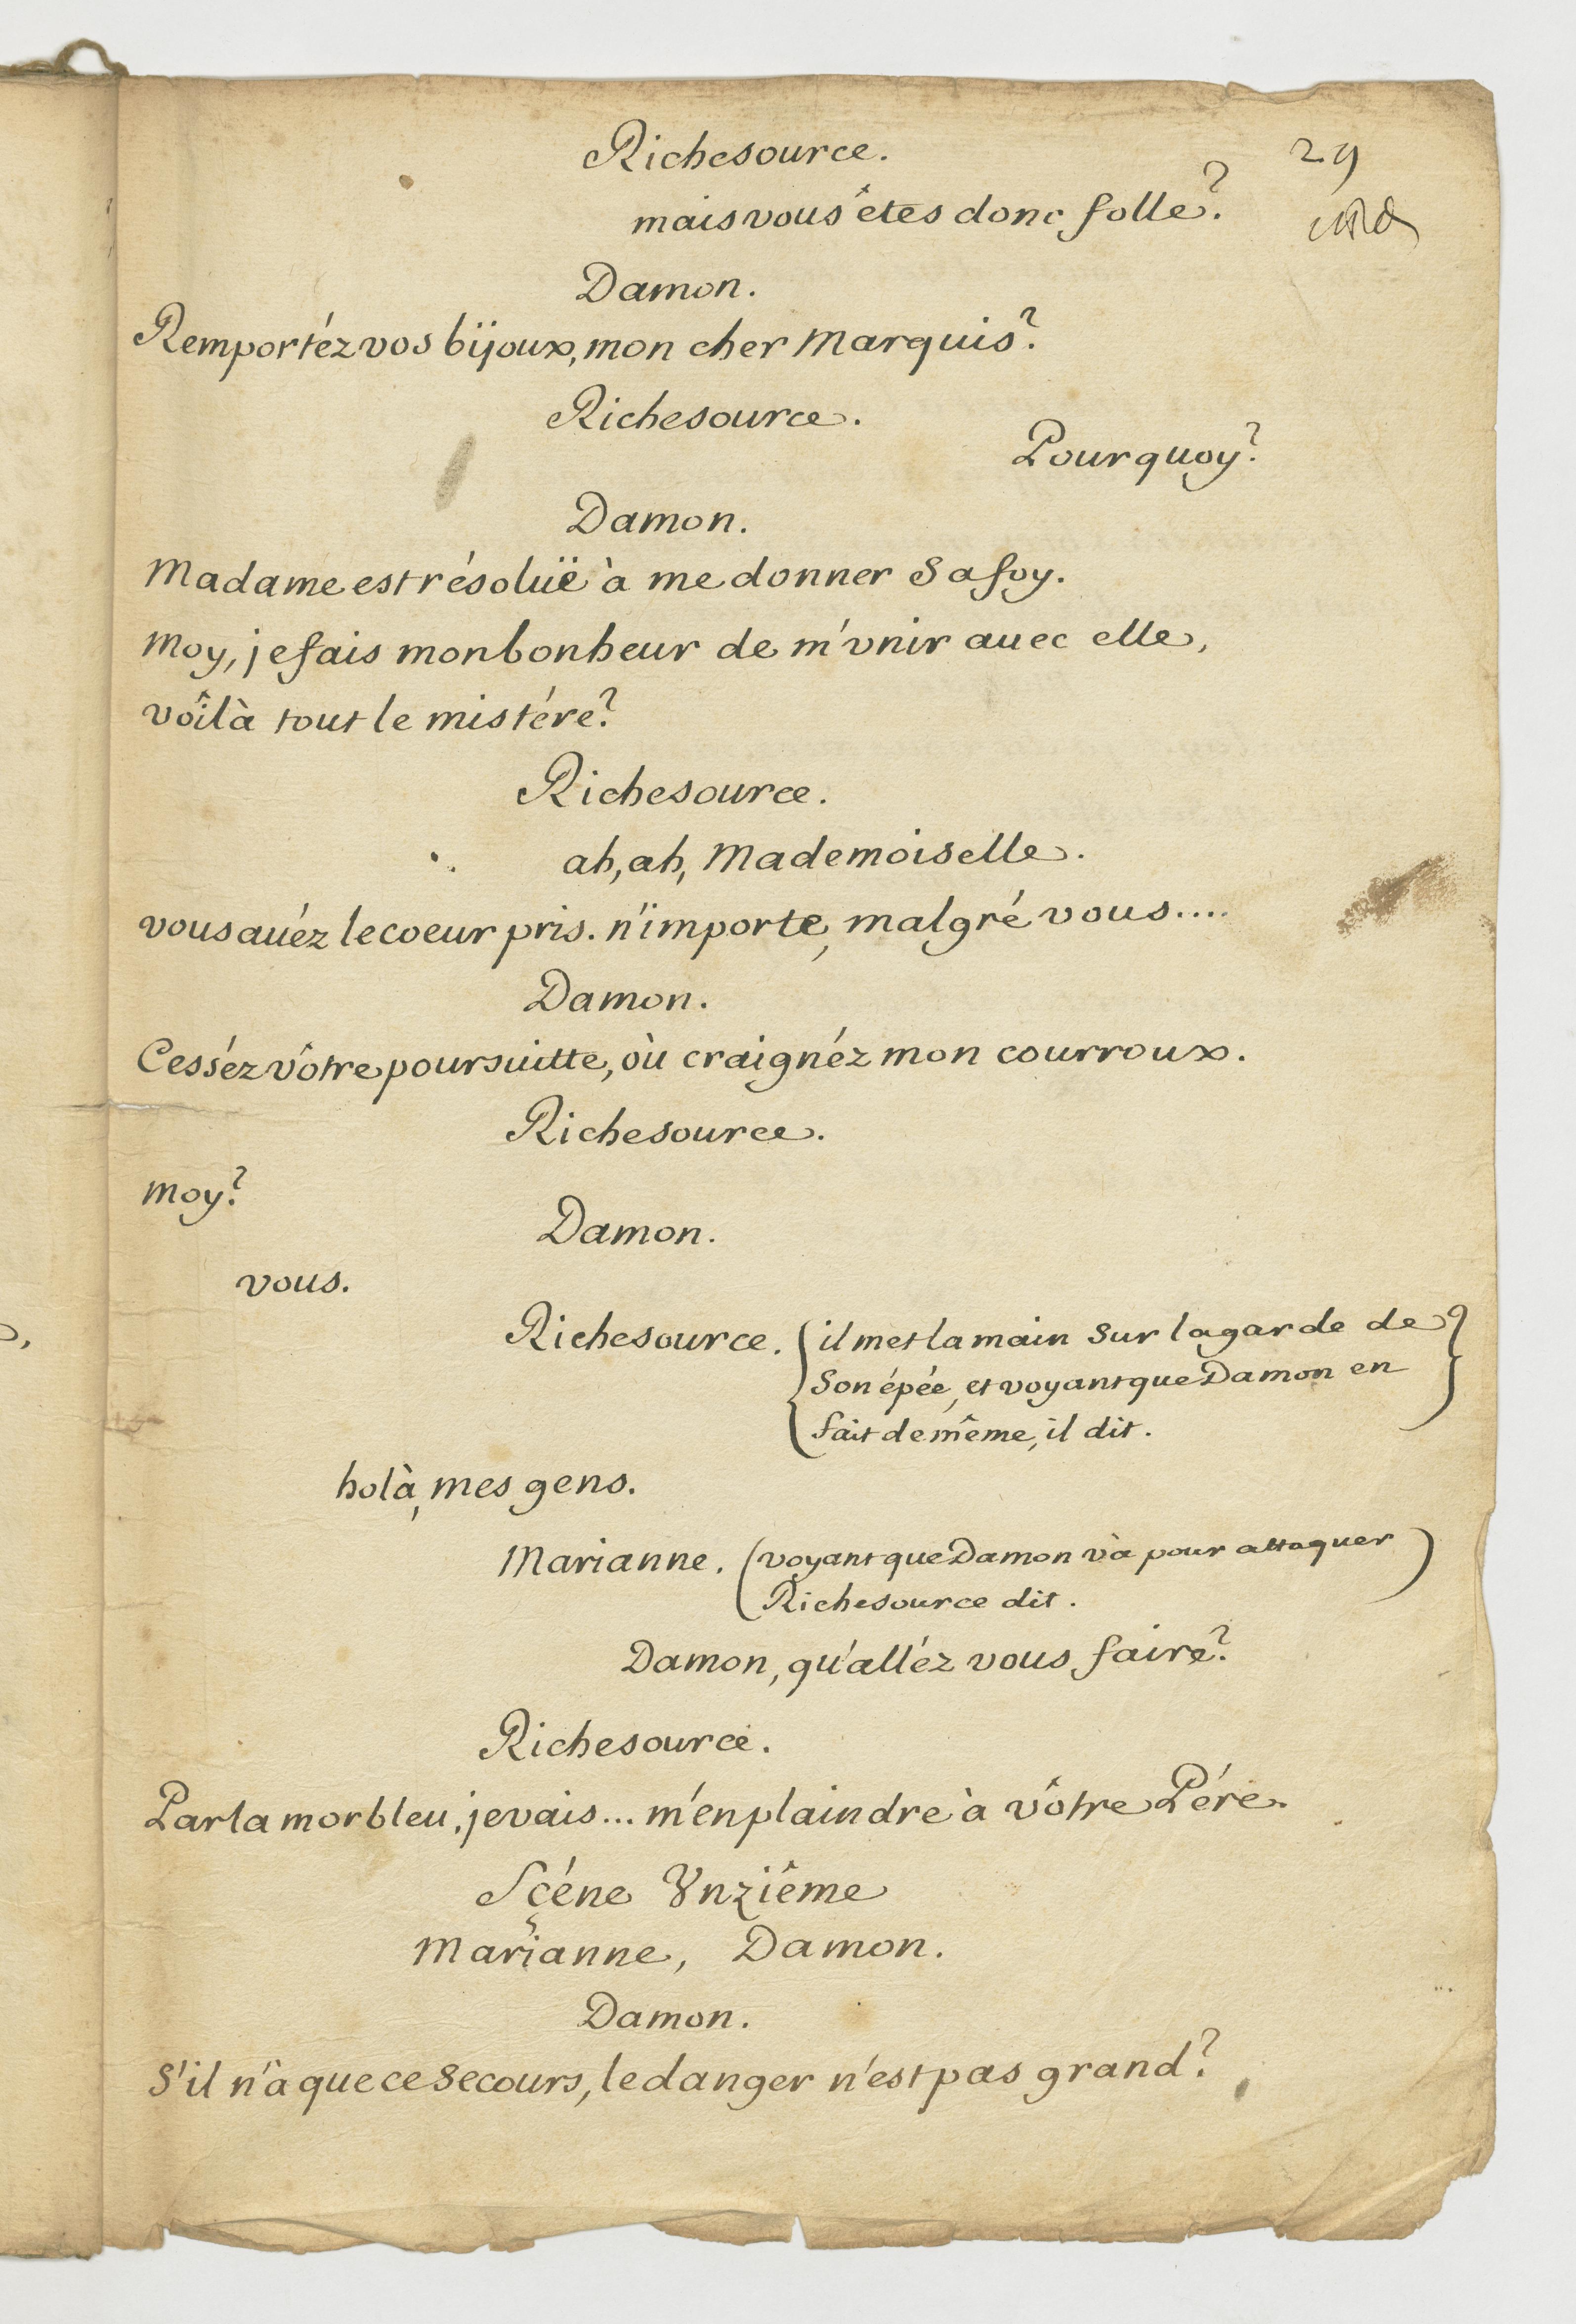 Richesource.
29
mais vous êtes donc folle?
Damon.
Remportéz vos bijoux, mon cher Marquis?
Richesource.
Pourquoy?
Damon.
Madame est résoluë à me donner Sa foy.
Moy, je fais mon bonheur de m'vnir auec elle,
voîlà tout le mistére?
Richesource.
ah, ah, Mademoiselle.
vous auéz le coeur pris. n'importe, malgré vous....
Damon.
Cesséz vôtre poursuitte, où craignéz mon courroux.
Richesource.
Moy?
Damon.
vous.
Richesource. { il met la main Sur la garde de }
Son épée, et voyant que Damon en
fait de même, il dit.
holà, mes gens.
Marianne. (voyant que Damon và pour attaquer)
Richesource dit.
Damon, qu'alléz vous faire?
Richesource.
Parla morbleu, je vais... m'en plaindre à vôtre Pére.
Scéne Vnziême
Marianne, Damon.
Damon.
S'il n'à que ce Secours, le danger n'est pas grand?